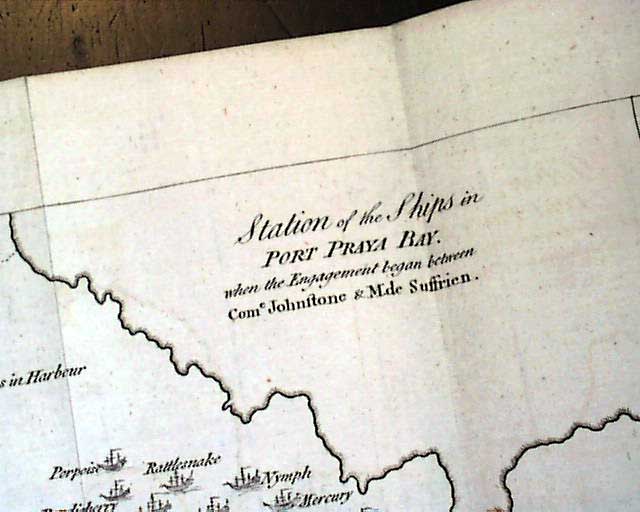 Station of the Ships in
PORT PRAYA BAY.
when the Engagement began between
Com.e Johnſtone & M.de Suffrien.
s in Harbour
Porpoise
Rattlesnake
Nymph
Mercury